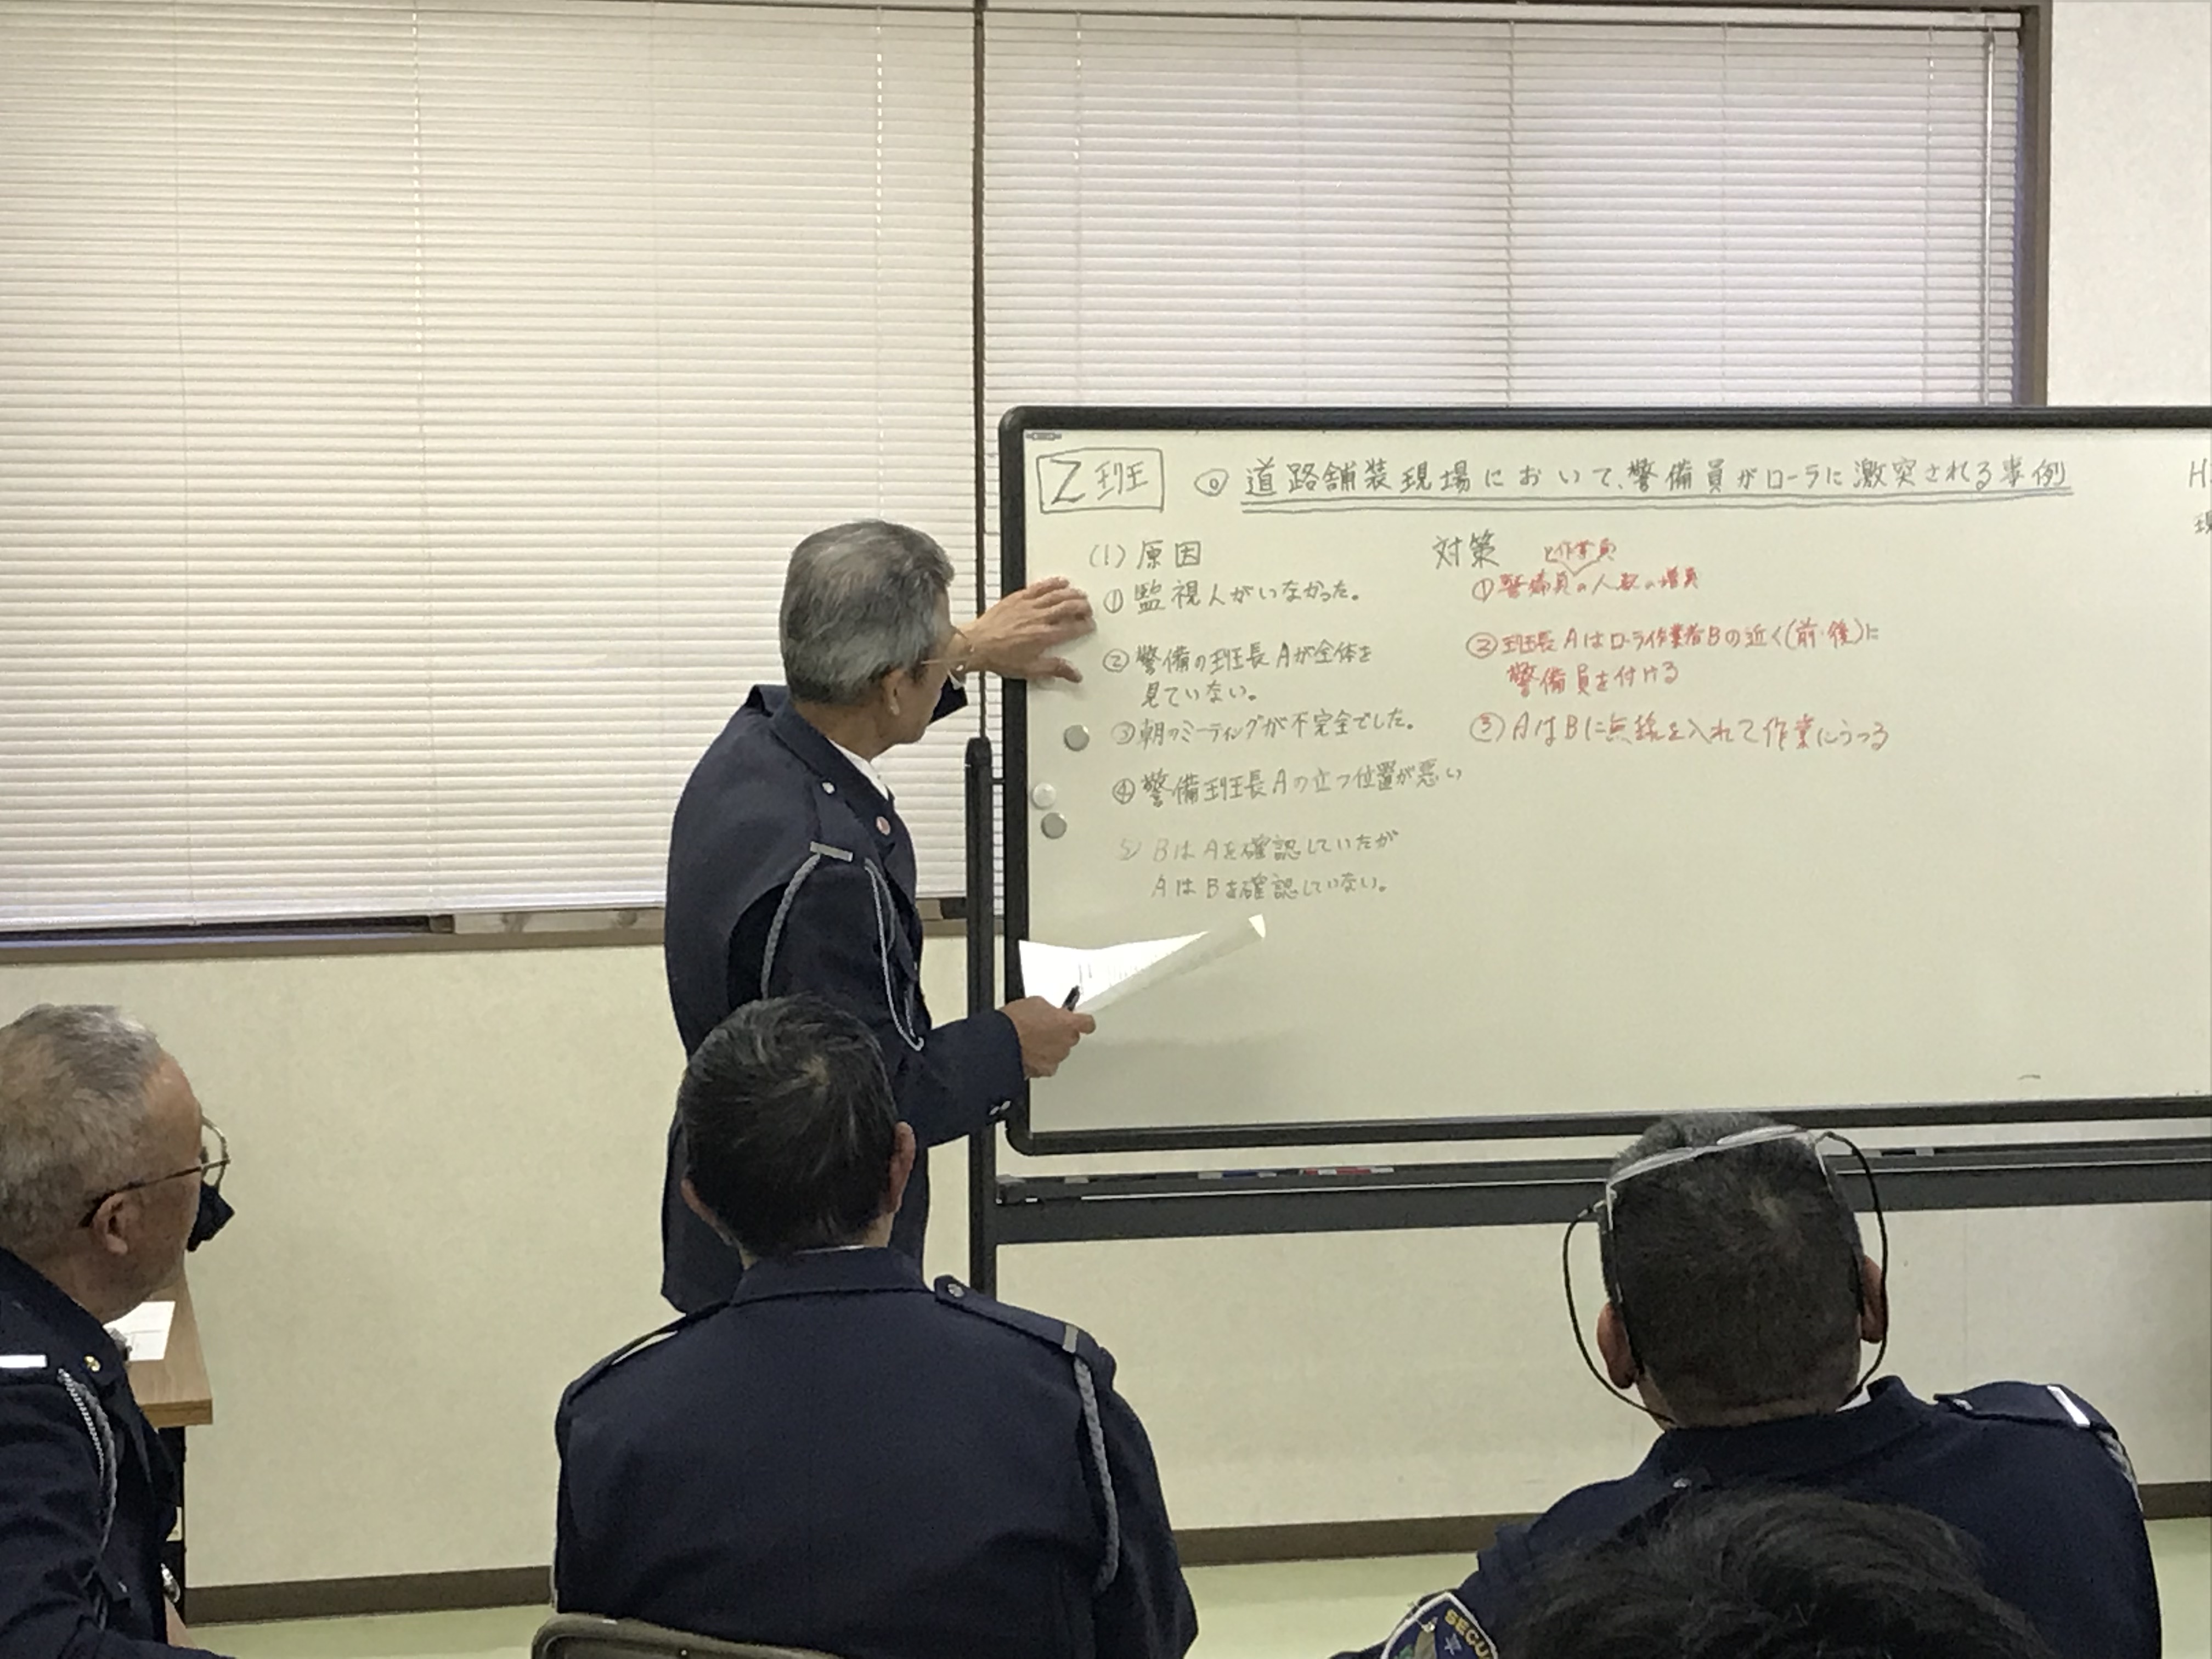 Z班
◎ 道路舗装現場において、警備員がローラに激突される事例
(1) 原因
① 監視人がいなかった。
② 警備の班長Aが全体を
見ていない。
③ 朝のミーティングが不完全でした。
④ 警備班長Aの立つ位置が悪い
5) BはAを確認していたが
AはBを確認していない。
対策
と作業員
① 警備員の人数の増員
② 班長Aはローラ作業者Bの近く(前・後)に
警備員を付ける
③ AはBに無線を入れて作業にうつる
H
現
SECU